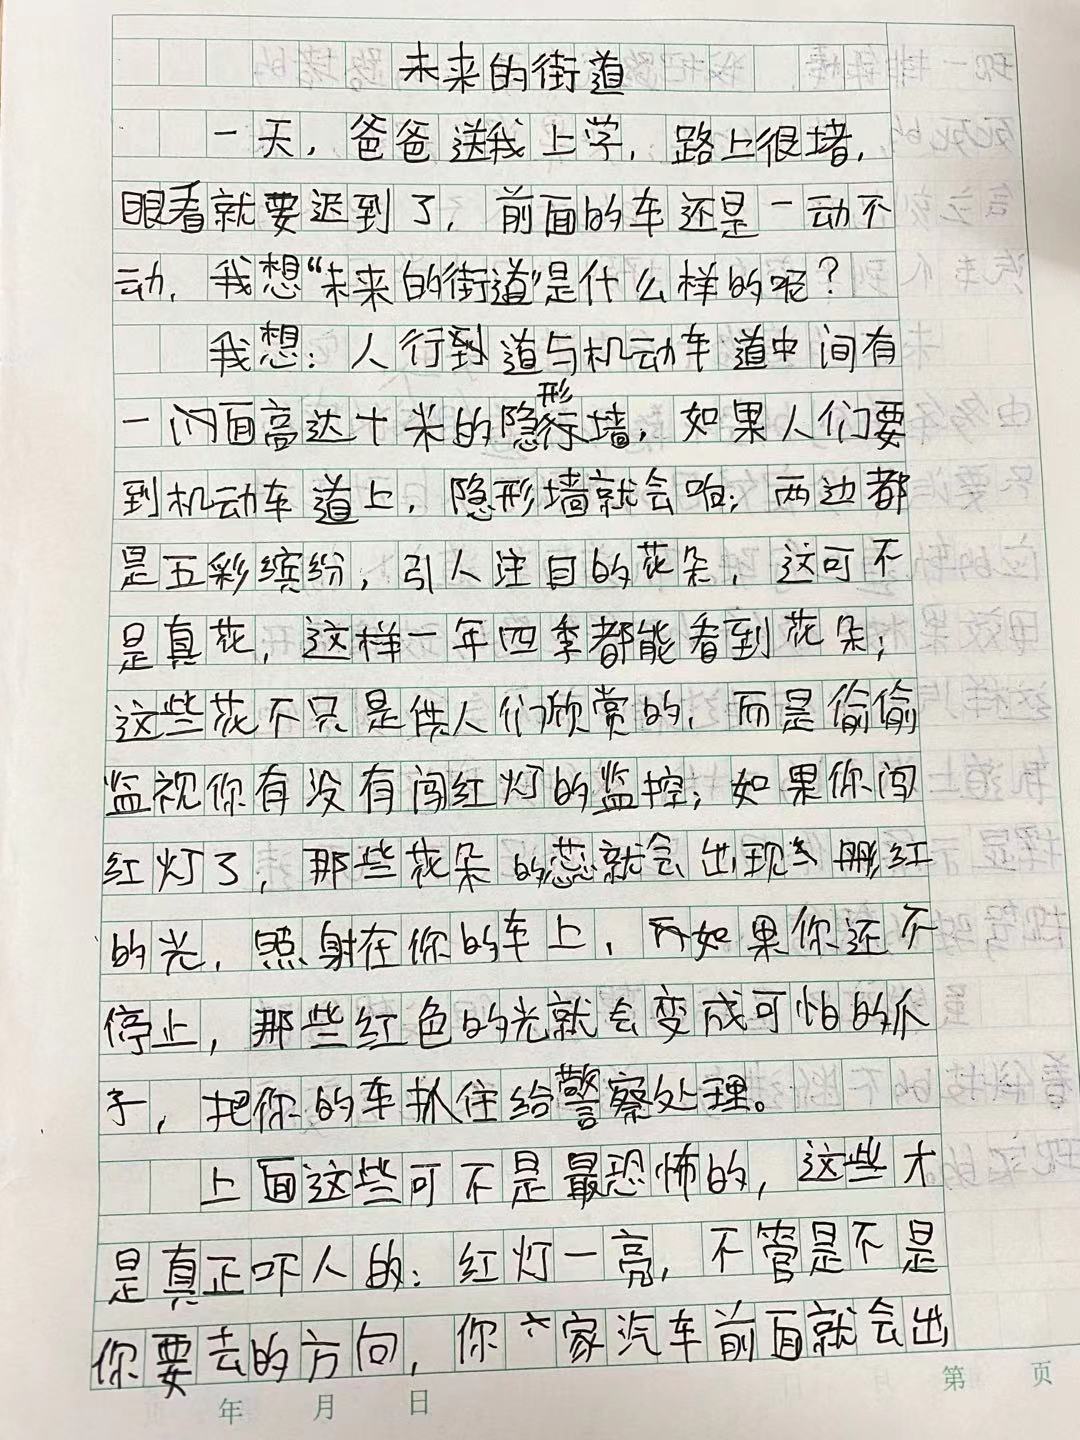 未来的街道
一天，爸爸送我上学，路上很堵，
眼看就要迟到了，前面的车还是一动不
动，我想“未来的街道”是什么样的呢？
我想：人行到道与机动车道中间有
形
一闪面高达十米的隐行墙，如果人们要
到机动车道上，隐形墙就会响；两边都
是五彩缤纷，引人注目的花朵，这可不
是真花，这样一年四季都能看到花朵；
这些花不只是供人们欣赏的，而是偷偷
监视你有没有闯红灯的监控；如果你闯
红灯了，那些花朵的蕊就会出现 彤红
的光，照射在你的车上，而如果你还不
停止，那些红色的光就会变成可怕的爪
子，把你的车抓住给警察处理。
上面这些可不是最恐怖的，这些才
是真正吓人的：红灯一亮，不管是不是
你要去的方向，你 家汽车前面就会出
年 月 日
第 页